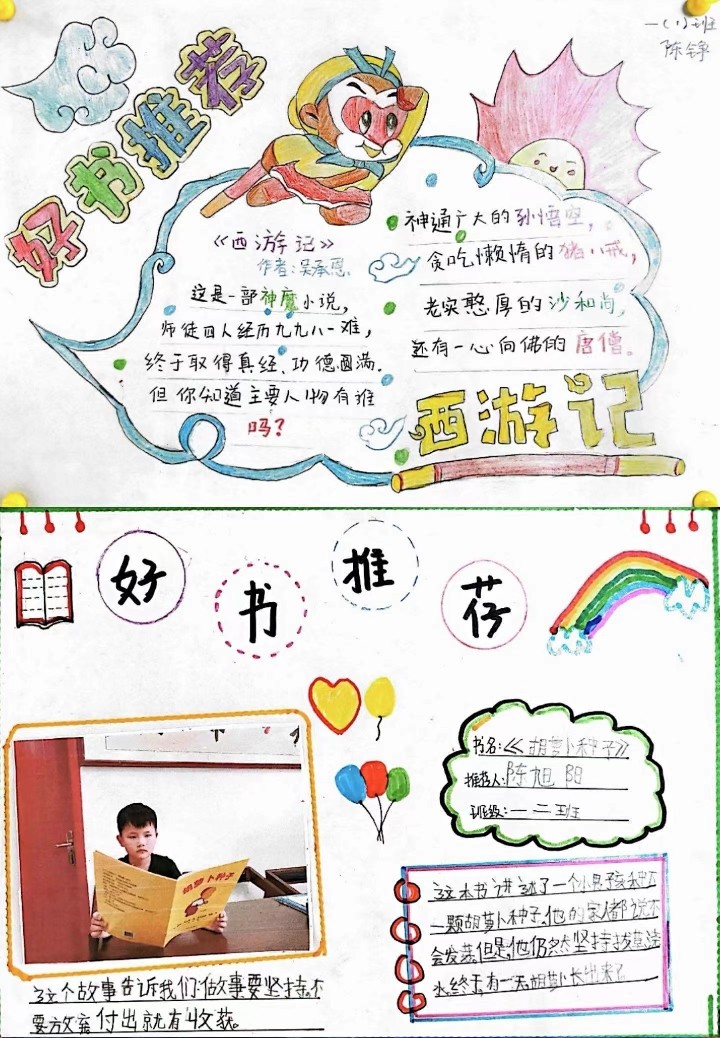 一(1)班
陈铮
好书推荐
《西游记》
作者:吴承恩.
这是一部神魔小说,
师徒四人经历九九八一难,
终于取得真经、功德圆满.
但你知道主要人物有谁
吗?
神通广大的孙悟空,
贪吃懒惰的猪八戒,
老实憨厚的沙和尚,
还有一心向佛的唐僧。
西游记
好书推荐
书名:《胡萝卜种子》
推荐人:陈旭阳
班级:一二班
胡萝卜种子
这本书讲述了一个小男孩种下
一颗胡萝卜种子,他的家人都说不
会发芽.但是,他仍然坚持拔草浇
水.终于,有一天胡萝卜长出来了
这个故事告诉我们:做故事要坚持.不
要放弃付出就有收获。